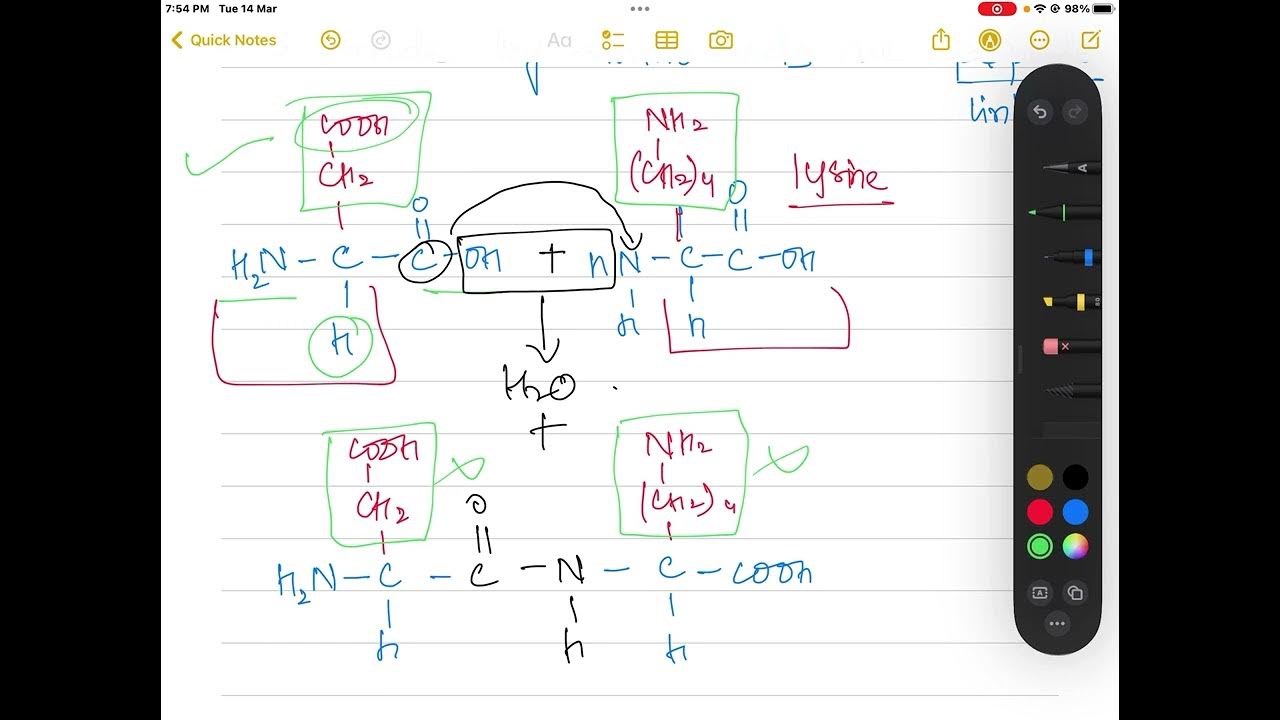 7:54 PM Tue 14 Mar
98%
Quick Notes
Aa
lin
COOH
CH2
NH2
(CH2)4
lysine
O
O
H2N - C - C - OH + H N - C - C - OH
H
H
H
H2O
+
COOH
CH2
NH2
(CH2)4
O
H2N - C - C - N - C - COOH
H
H
H